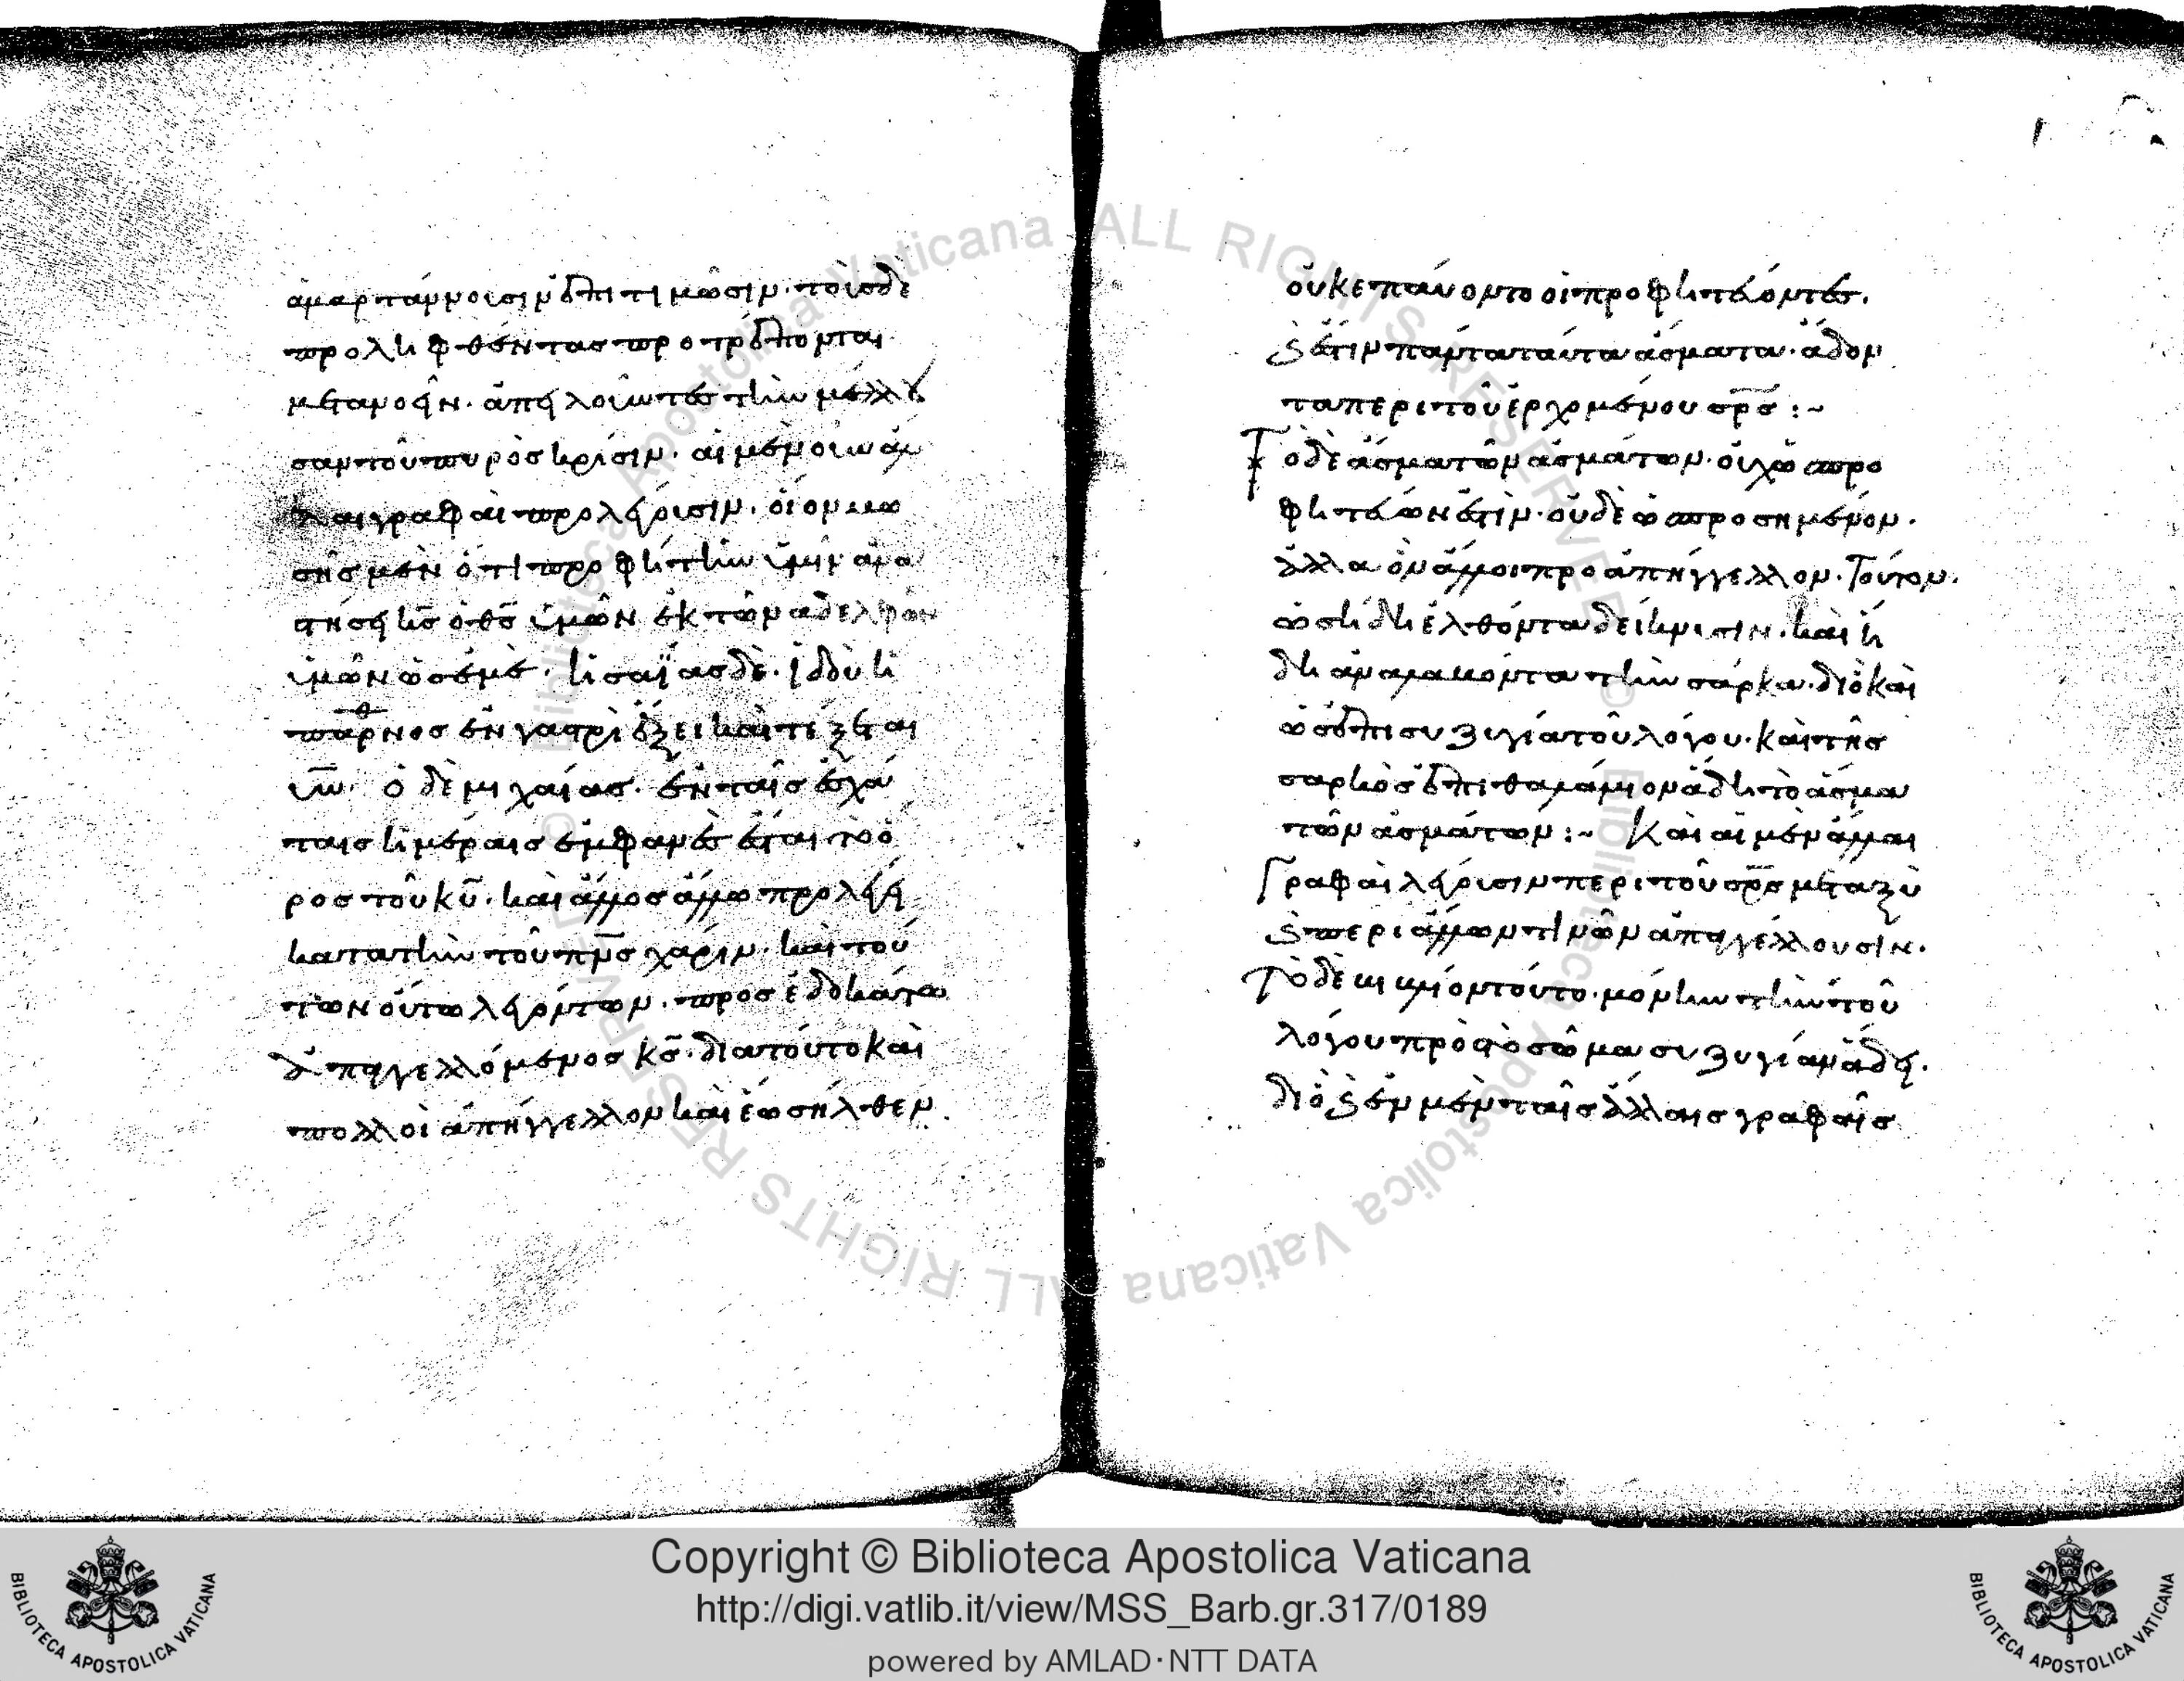 ἁμαρτάνουσιν ἐπιτιμῶσιν· τοὺς δὲ
προληφθέντας προτρέπονται
μετανοεῖν· ἀπειλοῦντες τὴν μέλλου
σαν τοῦ πυρὸς κρίσιν· αἱ μὲν οὖν ἄλ
λαι γραφαὶ προλέγουσιν· οἷον μω
σῆς μὲν ὅτι προφήτην ὑμῖν ἀνα
στήσει κς̅ ὁ θς̅ ὑμῶν ἐκ τῶν ἀδελφῶν
ὑμῶν ὡς ἐμέ· ἡσαΐας δὲ· ἰδοὺ ἡ
παρθνος ἐν γαστρὶ ἕξει καὶ τέξεται
υν̅· ὁ δὲ μιχαίας· ἐν ταῖς ἐσχά
ταις ἡμέραις ἐμφανὲς ἔσται τὸ ὄ
ρος τοῦ κυ̅· καὶ ἄλλος ἄλλο προλέγει
κατὰ τὴν τοῦ πνς̅ χάριν· καὶ τού
των οὕτω λεγόντων· προσεδοκᾶτο
ὁ ἐπαγγελλόμενος κς̅· διὰ τοῦτο καὶ
πολλοὶ ἀπήγγελλον καὶ ἕως ἦλθεν
οὐκ ἐπαύοντο οἱ προφητεύοντες.
καὶ ἔστιν πάντα ταῦτα ἄσματα· ᾆδον
τα περὶ τοῦ ἐρχομένου σρς̅ :~
Τὸ δὲ ᾆσμα τῶν ᾀσμάτων· οὐχ ὡς προ
φητεῦόν ἐστιν· οὐδὲ ὡς προσημένον·
ἀλλὰ ὃν ἄλλοι προαπήγγελλον· Τοῦτον·
ὡς ἤδη ἐλθόντα δείκνυσιν· καὶ ἤ
δη ἀναλαβόντα τὴν σάρκα· διὸ καὶ
ὡς ἐπὶ συζυγίᾳ τοῦ λόγου· καὶ τῆς
σαρκὸς ἐπιθαλάμιον ᾄδει τὸ ᾆσμα
τῶν ᾀσμάτων :~ Καὶ αἱ μὲν ἄλλαι
Γραφαὶ λέγουσιν περὶ τοῦ σρς̅ μεταξὺ
καὶ περὶ ἄλλων τινῶν ἀπαγγέλλουσιν·
Τὸ δὲ βιβλίον τοῦτο· μόνην τὴν τοῦ
λόγου πρὸς τὸ σῶμα συζυγίαν ᾄδει·
διὸ καὶ ἐν μὲν ταῖς ἄλλαις γραφαῖς
Copyright © Biblioteca Apostolica Vaticana
http://digi.vatlib.it/view/MSS_Barb.gr.317/0189
powered by AMLAD·NTT DATA
BIBLIOTECA APOSTOLICA VATICANA
BIBLIOTECA APOSTOLICA VATICANA